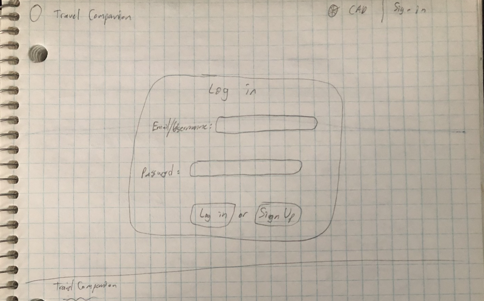 Travel Companion
CAD | Sign in
Log in
Email/Username:
Password:
Log in or Sign Up
Travel Companion